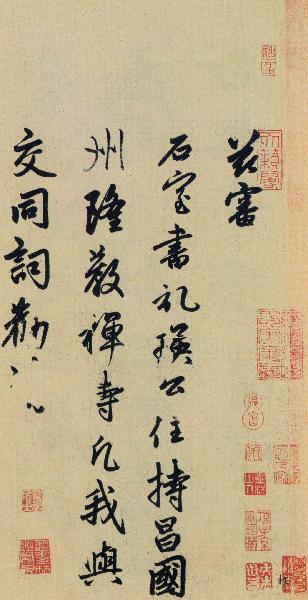 茲審
石室書記瑛公住持昌國
州隆教禪寺凡我與
交同詞勸請